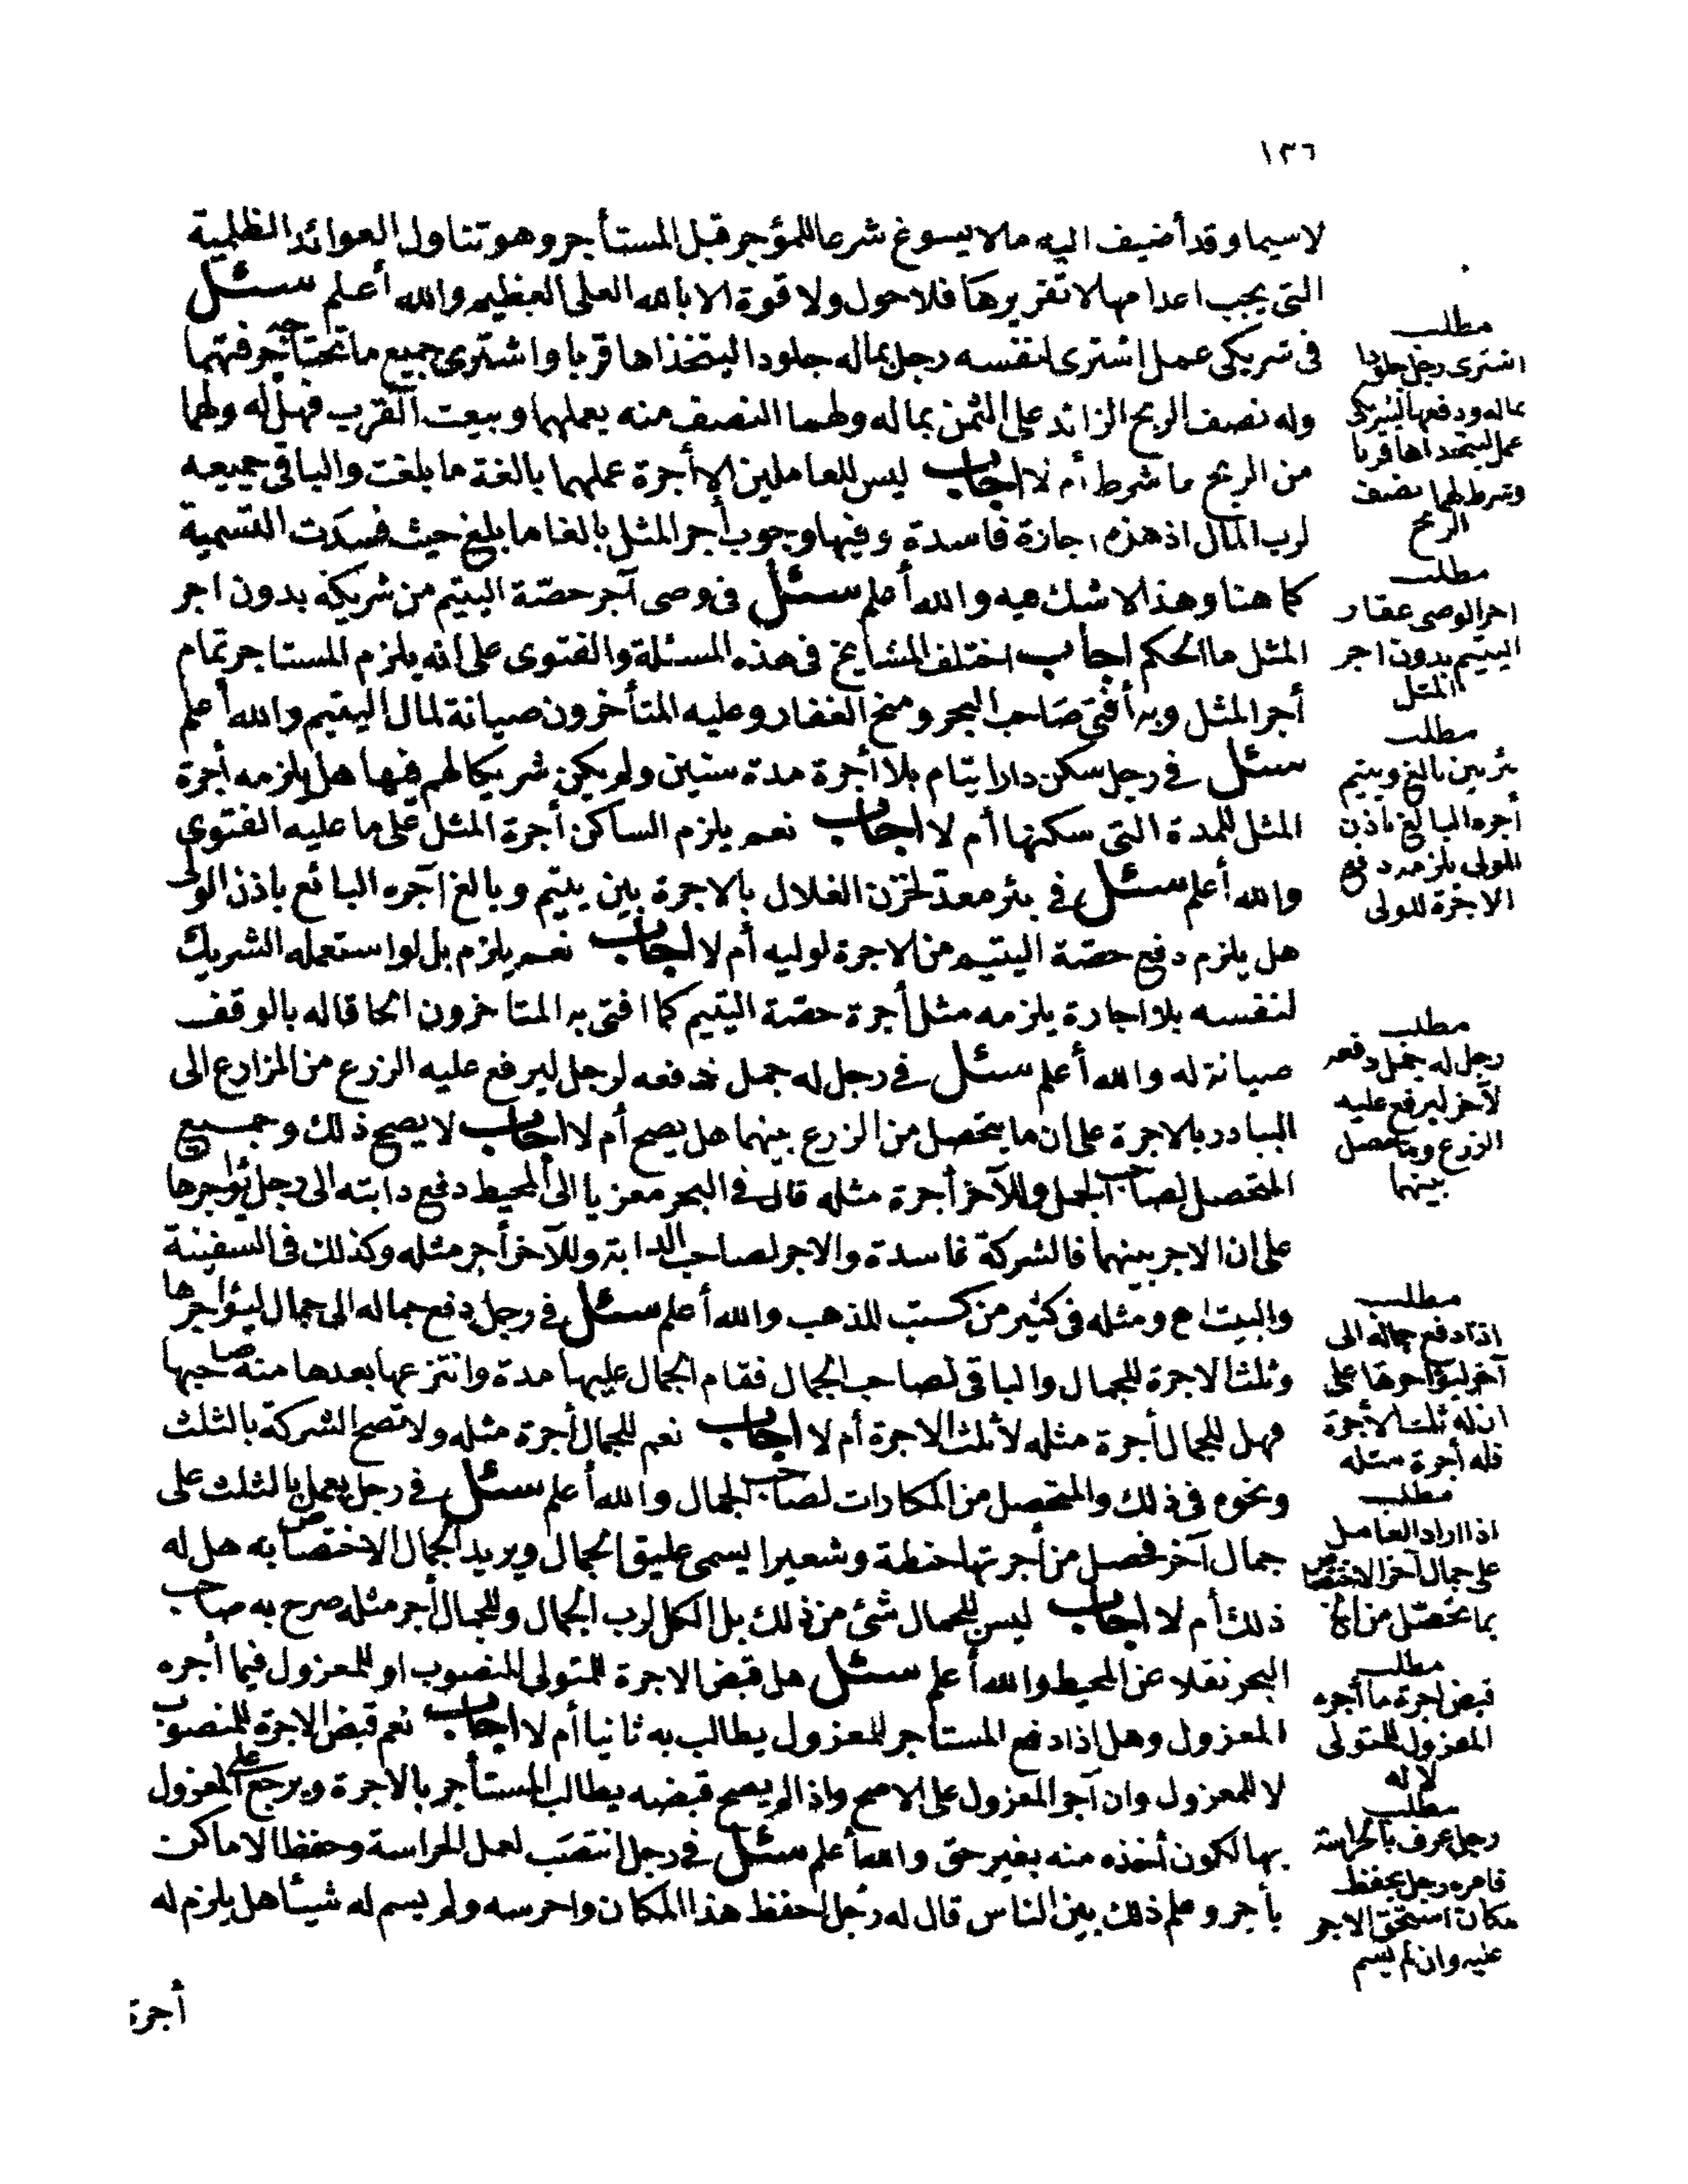 ١٣٦
لاسيما وقد أضيف اليه مالا يسوغ شرعا للمؤجر قبل المستأجر وهو تناول العوائد الظلمية
التى يجب اعدامها لا تقريرها فلا حول ولا قوة الا بالله العلى العظيم والله أعلم سئل
فى شريكى عمل اشترى لنفسه رجل بماله جلودا ليتخذاها قربا واشترى جميع ما تحتاجه حرفتهما
وله نصف الربح الزائد على الثمن بماله ولهما النصف منه بعملهما وبيعت القرب فهل له ولهما
من الربح ما شرط أم لا اجاب ليس للعاملين الا أجرة عملهما بالغة ما بلغت والباقى جميعه
لرب المال اذ هذه اجازة فاسدة وفيها وجوب أجر المثل بالغا ما بلغ حيث فسدت التسمية
كما هنا وهذا لا شك فيه والله أعلم سئل فى وصى آجر حصة اليتيم من شريكه بدون اجر
المثل ما الحكم اجاب اختلف المشايخ فى هذه المسئلة والفتوى على انه يلزم المستاجر تمام
أجر المثل وبه أفتى صاحب البحر ومنح الغفار وعليه المتأخرون صيانة لمال اليتيم والله أعلم
سئل فى رجل سكن دار ايتام بلا أجرة مدة سنين ولم يكن شريكا لهم فيها هل يلزمه أجرة
المثل للمدة التى سكنها أم لا اجاب نعم يلزم الساكن أجرة المثل على ما عليه الفتوى
والله أعلم سئل فى بئر معد لخزن الغلال بالاجرة بين يتيم وبالغ آجره البائع باذن الولى
هل يلزم دفع حصة اليتيم من الاجرة لوليه أم لا اجاب نعم يلزم بل لو استعمله الشريك
لنفسه بلا اجارة يلزمه مثل أجرة حصة اليتيم كما افتى به المتاخرون الحاقا له بالوقف
صيانة له والله أعلم سئل فى رجل له جمل فدفعه لرجل ليرفع عليه الزرع من المزارع الى
البيادر بالاجرة على ان ما يتحصل من الزرع بينهما هل يصح أم لا اجاب لا يصح ذلك وجميع
المتحصل لصاحب الجمل وللآخر أجرة مثله قال فى البحر معزيا الى المحيط دفع دابته الى رجل يؤاجرها
على ان الاجر بينهما فالشركة فاسدة والاجر لصاحب الدابة وللآخر أجر مثله وكذلك فى السفينة
والبيت اه ومثله فى كثير من كتب المذهب والله أعلم سئل فى رجل دفع جماله الى جمال ليؤاجرها
وثلث الاجرة للجمال والباقى لصاحب الجمال فقام الجمال عليها مدة وانتزعها بعدها منه صاحبها
فهل للجمال أجرة مثله لا ثلث الاجرة أم لا اجاب نعم للجمال أجرة مثله ولا تصح الشركة بالثلث
ونحوه فى ذلك والمتحصل من المكارات لصاحب الجمال والله أعلم سئل فى رجل يعمل بالثلث على
جمال آخر فحصل من أجرتها حنطة وشعيرا يسمى عليق الجمال ويريد الجمال الاختصاص به هل له
ذلك أم لا اجاب ليس للجمال شئ من ذلك بل الكل لرب الجمال وللجمال أجر مثله صرح به صاحب
البحر نقلا عن المحيط والله أعلم سئل هل قبض الاجرة للمتولى المنصوب او للمعزول فيما أجره
المعزول وهل اذا دفع المستاجر للمعزول يطالب به ثانيا أم لا اجاب نعم قبض الاجرة للمنصوب
لا للمعزول وان آجر المعزول على الاصح واذا لم يصح قبضه يطالب المستأجر بالاجرة ويرجع على المعزول
بها لكون أخذه منه بغير حق والله أعلم سئل فى رجل انتصب لعمل الحراسة وحفظ الاماكن
بأجر وعلم ذلك بين الناس قال له رجل احفظ هذا المكان واحرسه ولم يسم له شيئا هل يلزم له
أجرة
مطلب
اشترى رجل جلودا
بماله ودفعها لشريكى
عمل ليتخذاها قربا
وشرط لهما نصف
الربح
مطلب
اجر الوصى عقار
اليتيم بدون اجر
المثل
مطلب
بئر بين بالغ ويتيم
أجره البالغ باذن
المولى يلزمه دفع
الاجرة للولى
مطلب
رجل له جمل دفعه
لآخر ليرفع عليه
الزرع وما حصل
بينهما
مطلب
اذا دفع جماله الى
آخر ليؤاجرها على
ان له ثلث الاجرة
فله أجرة مثله
مطلب
اذا اراد العامل
على جمال آخر الاختصاص
بما تحصل من الخ
مطلب
قبض اجرة ما أجره
المعزول للمتولى
لا له
مطلب
رجل عرف بالحراسة
فامره رجل بحفظ
مكان استحق الاجر
عليه وان لم يسم